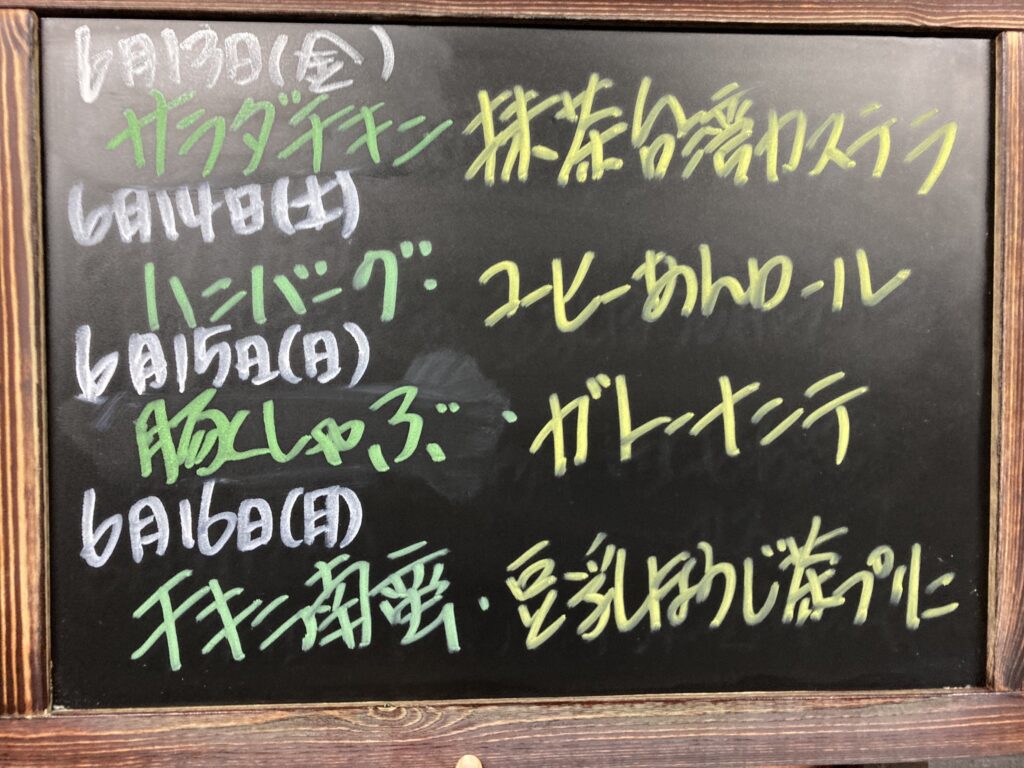 6月13日(金)
サラダチキン 抹茶台湾カステラ
6月14日(土)
ハンバーグ・コーヒーあんロール
6月15日(日)
豚しゃぶ・ガトーナンテ
6月16日(月)
チキン南蛮・豆乳ほうじ茶プリン